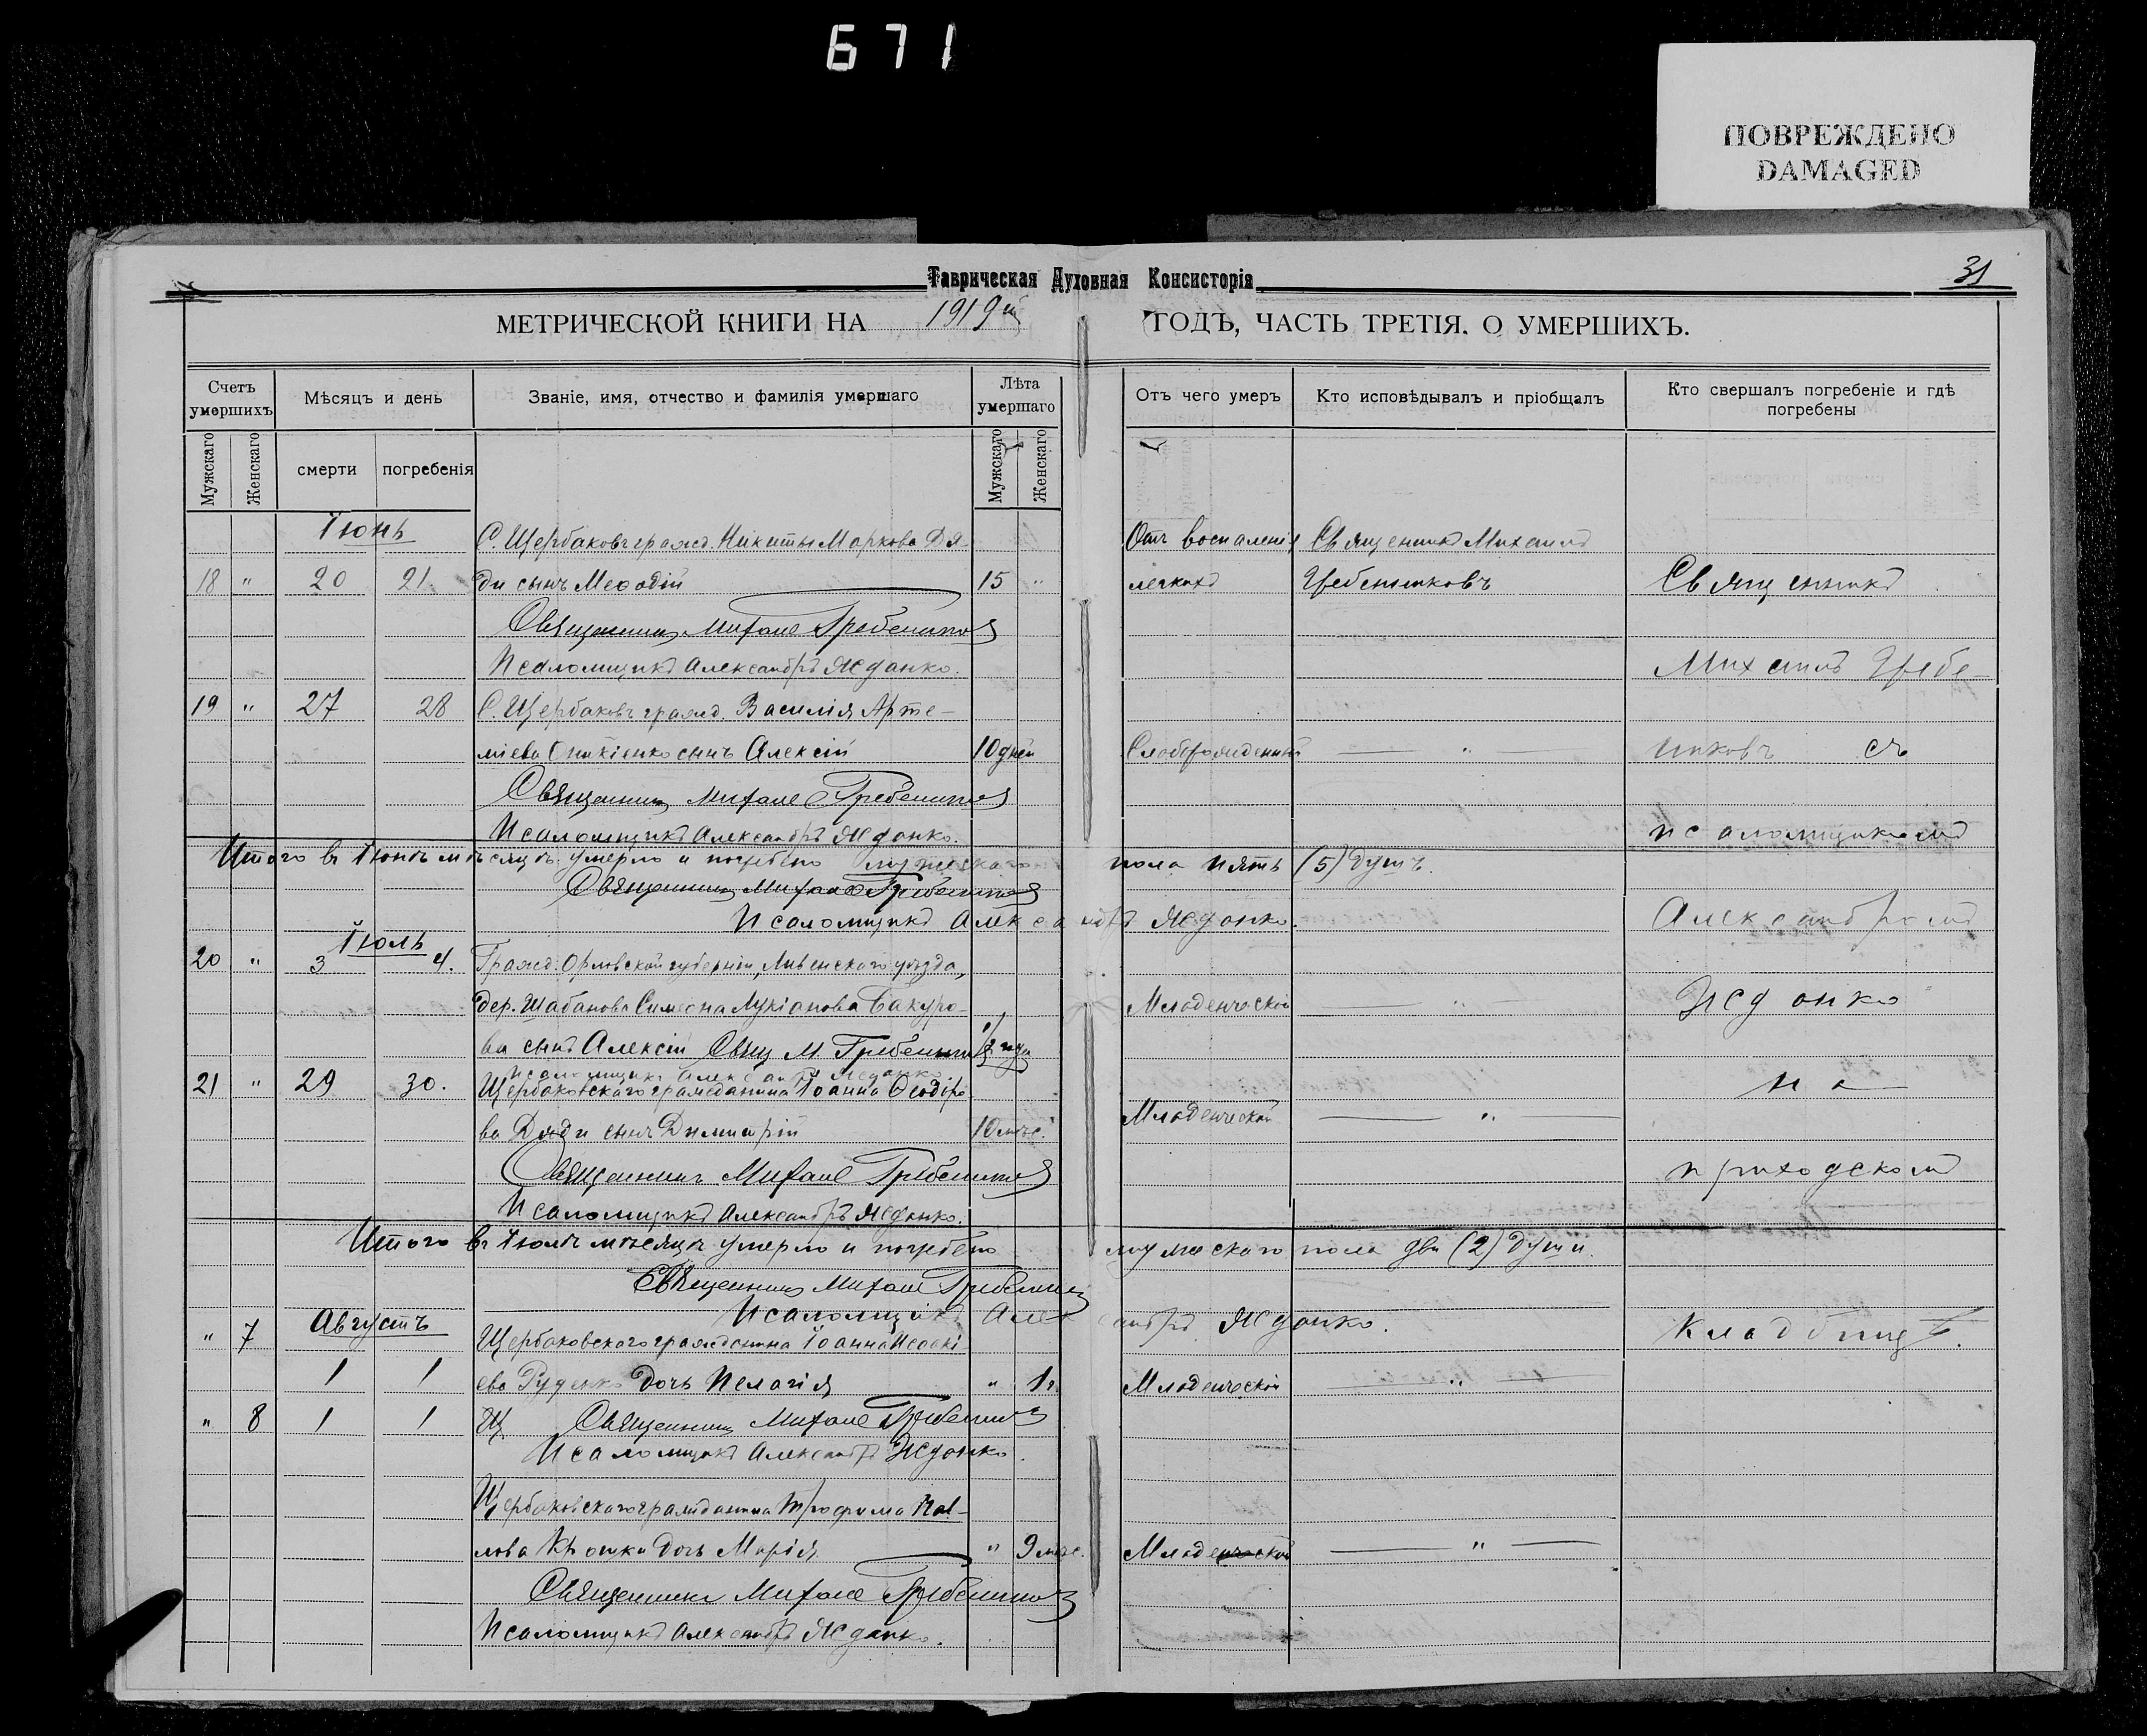 671
ПОВРЕЖДЕНО
DAMAGED
Таврическая Духовная Консисторія
31
МЕТРИЧЕСКОЙ КНИГИ НА 1919й ГОДЪ, ЧАСТЬ ТРЕТІЯ, О УМЕРШИХЪ.
Счетъ умершихъ
Мѣсяцъ и день
Званіе, имя, отчество и фамилія умершаго
Лѣта умершаго
Отъ чего умеръ
Кто исповѣдывалъ и пріобщалъ
Кто свершалъ погребеніе и гдѣ погребены
Мужскаго
Женскаго
смерти
погребенія
Мужскаго
Женскаго
Іюнь С. Щербаковъ гражд. Никиты Маркова Дя- Отъ воспаленія Священникъ Михаилъ
18 " 20 21 ди сынъ Меѳодій 15 " легкихъ Гребенниковъ Священникъ
Священникъ Михаилъ Гребенников
Псаломщикъ Александръ Жданко. Михаилъ Гребе-
19 " 27 28 С. Щербаковъ гражд. Василія Арте-
міева сынъ Алексій 10 дней Слаборожденный — " — никовъ съ
Священникъ Михаилъ Гребенников
Псаломщикъ Александръ Жданко. псаломщикомъ
Итого въ Іюнѣ мѣсяцѣ умерло и погребено мужескаго пола пять (5) душъ.
Священникъ Михаилъ Гребенников
Псаломщикъ Александръ Жданко. Александромъ
Іюль
20 " 3 4. Гражд. Орловской губерніи, Ливенскаго уѣзда,
дер. Шабанова Симеона Лукіанова Бакуро- Младенческой — " — Жданко
ва сынъ Алексій Свящ М. Гребенников 1/2 года
псаломщикъ Александръ Жданко на
21 " 29 30. Щербаковскаго гражданина Іоанна Ѳеодоро-
ва Дяди сынъ Димитрій 10 мѣс. Младенческой — " —
Священникъ Михаилъ Гребенников приходскомъ
Псаломщикъ Александръ Жданко.
Итого въ Іюлѣ мѣсяцѣ умерло и погребено мужескаго пола двѣ (2) души.
Священникъ Михаилъ Гребенников
Псаломщикъ Александръ Жданко.
Августъ
" 7 Щербаковскаго гражданина Іоанна Исааки- кладбищѣ.
1 1 ева Руденко дочь Пелагія " 1 г. Младенческой — " —
" 8 1 1 Щ Священникъ Михаилъ Гребенников
Псаломщикъ Александръ Жданко.
Щербаковскаго гражданина Трофима Пав-
лова дочь Марія " 9 мѣс. Младенческой — " —
Священникъ Михаилъ Гребенников
Псаломщикъ Александръ Жданко.